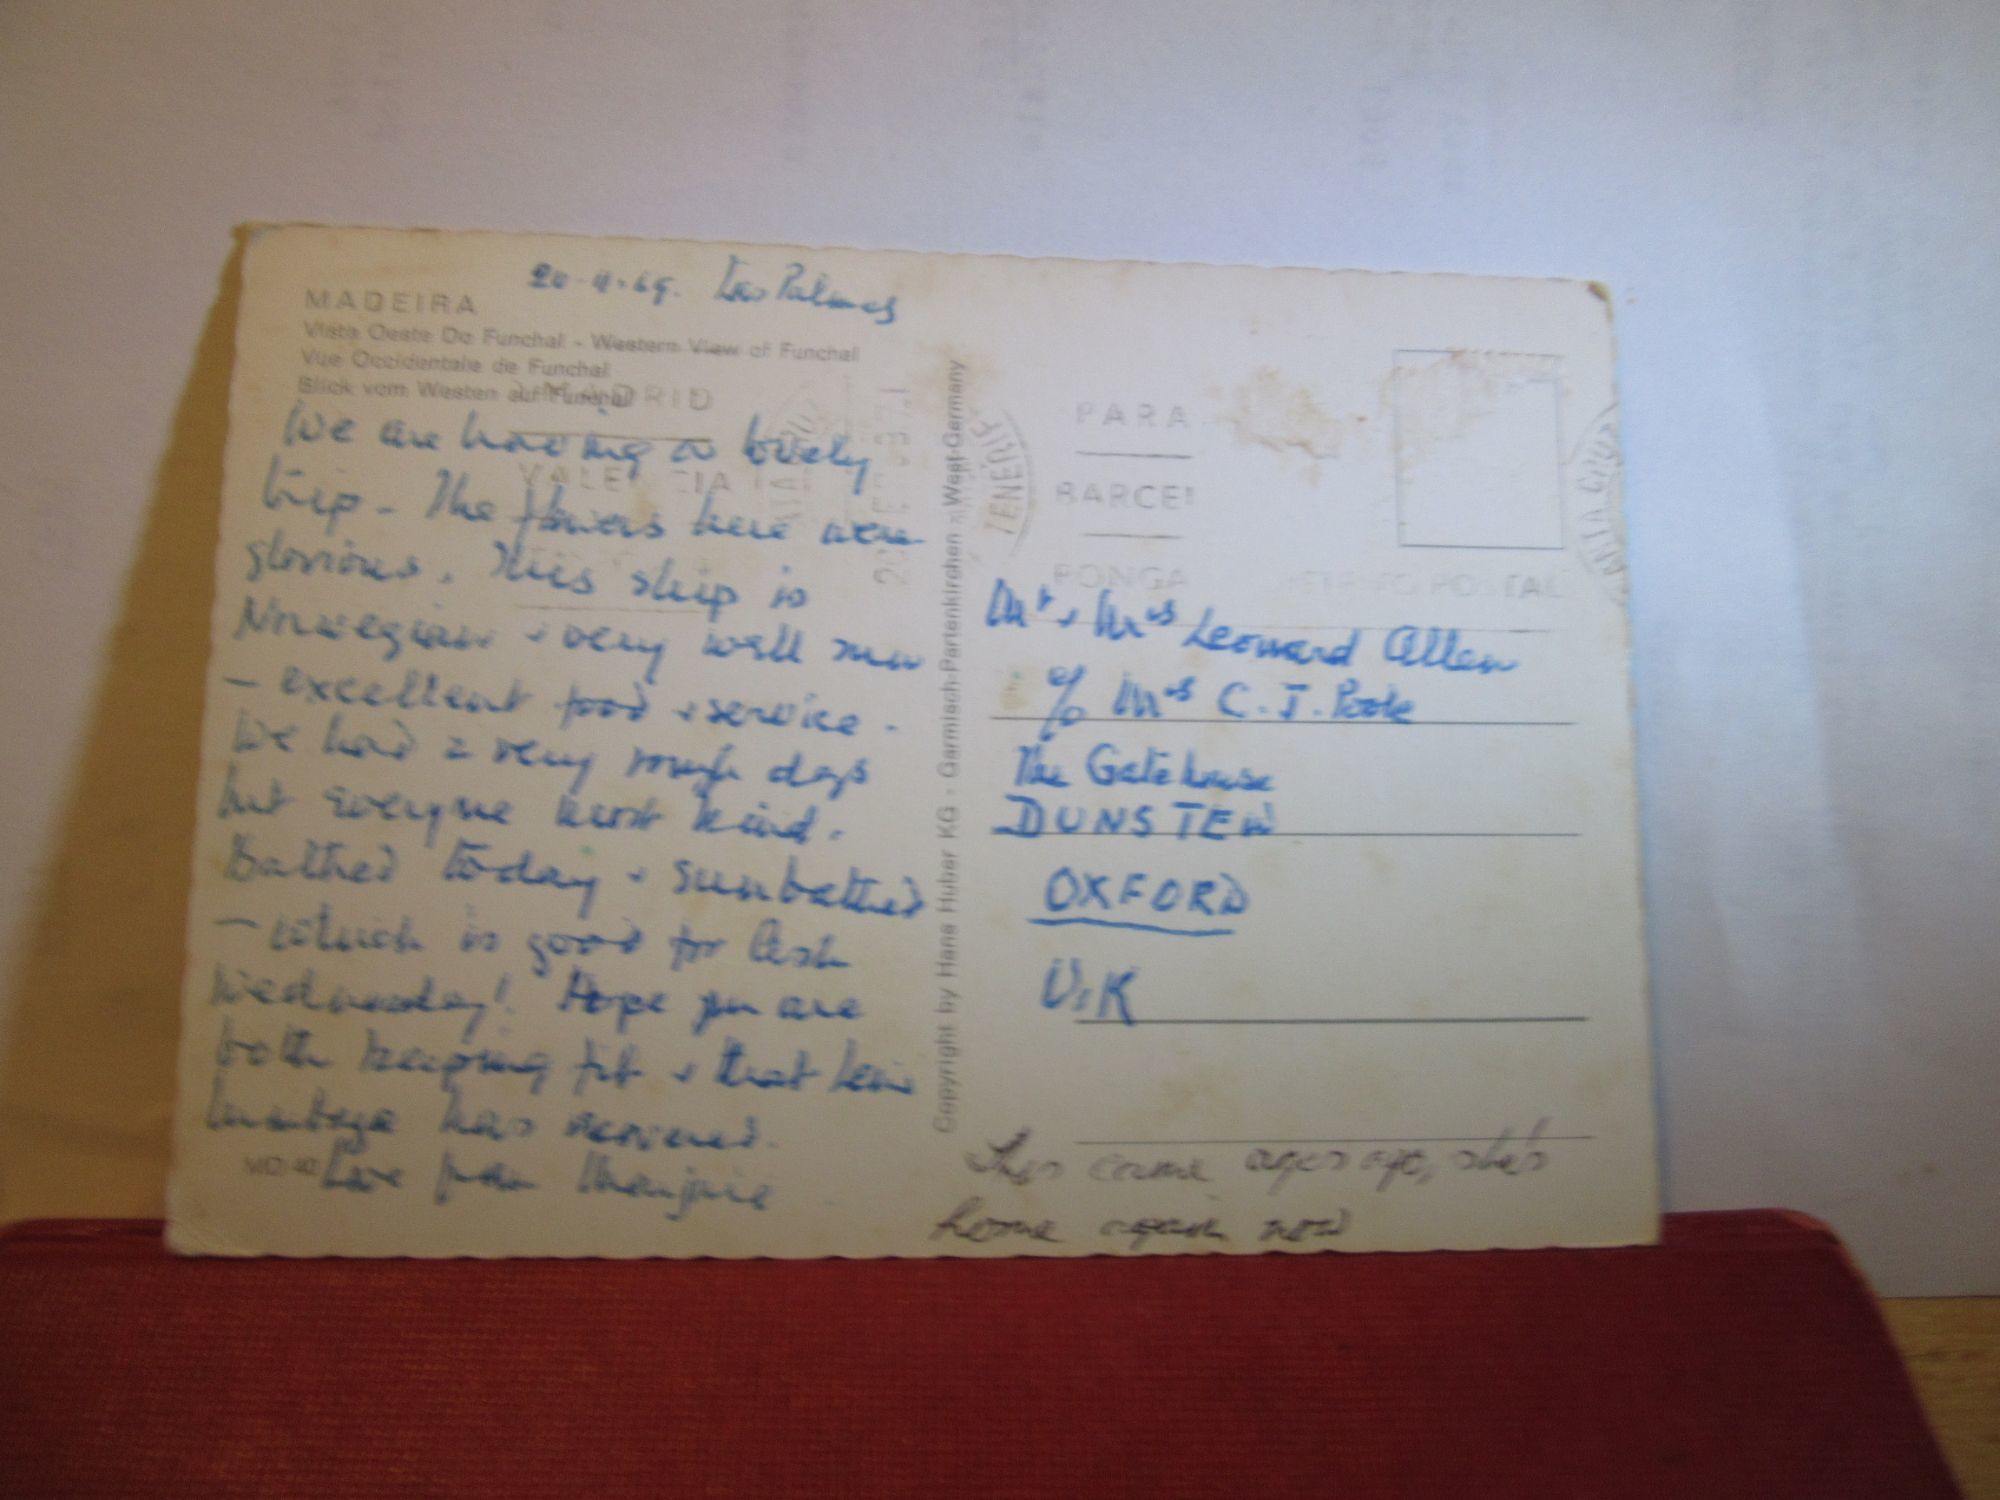 20-11-69. Las Palmas
MADEIRA
Vista Oeste De Funchal - Western View of Funchal
Vue Occidentale de Funchal
Blick vom Westen auf Funchal
MADRID
VALE CIA
We are having a lovely
trip - The flowers here were
glorious. This ship is
Norwegian + very well run
- excellent food + service -
We had 2 very rough days
but everyone most kind.
Bathed today + sunbathed
- which is good for Ash
Wednesday! Hope you are
both keeping fit + that
lumbago has
Love from Marjorie
MD 40
Copyright by Hans Huber KG - Garmisch-Partenkirchen - West-Germany
TENERIFE
PARA
BARCEL
PONGA
POSTAL
Mr + Mrs Leonard Allen
c/o Mrs C. J. Poole
The Gatehouse
DUNS TEW
OXFORD
U.K
This came ages ago, she's
home again now